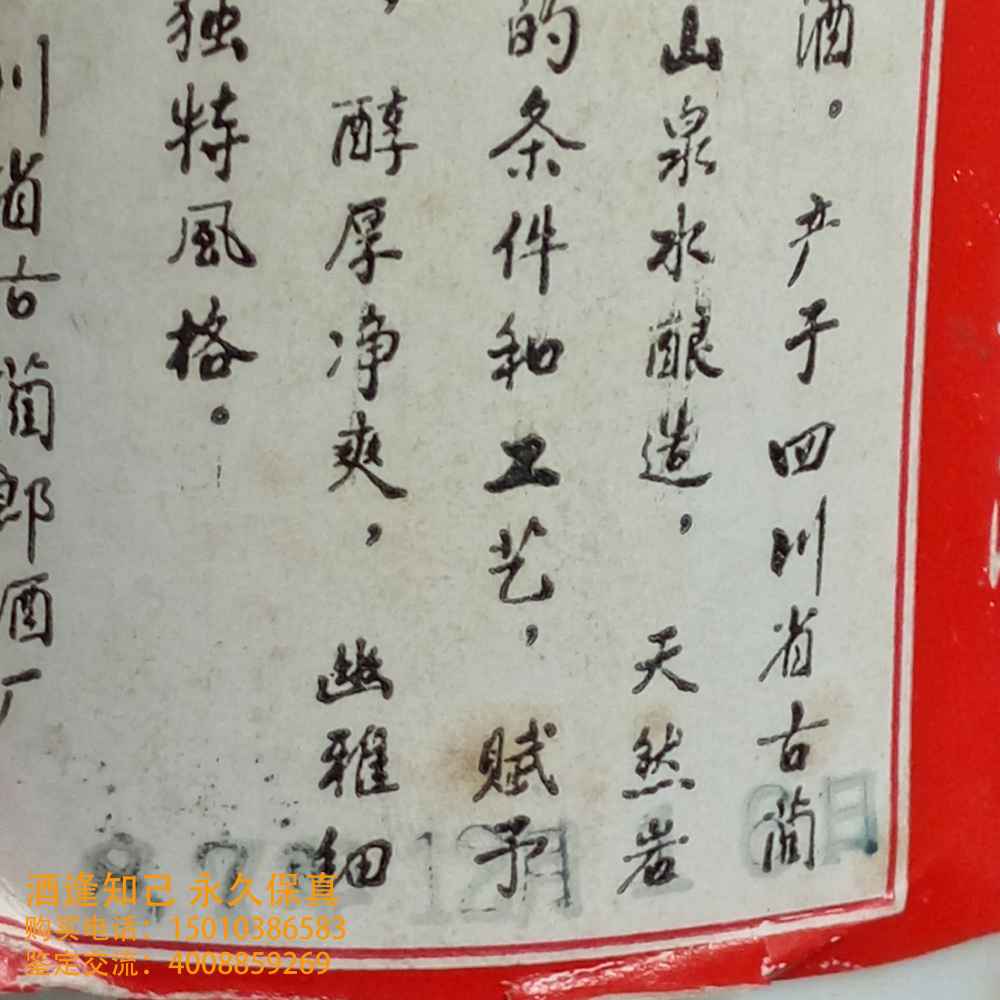 酒。产于四川省古蔺
山泉水酿造，天然岩
的条件和工艺，赋予
，醇厚净爽，幽雅细
独特風格。
川省古蔺郎酒厂
87年12月 6日
酒逢知己 永久保真
购买电话：15010386583
鉴定交流：4008859269